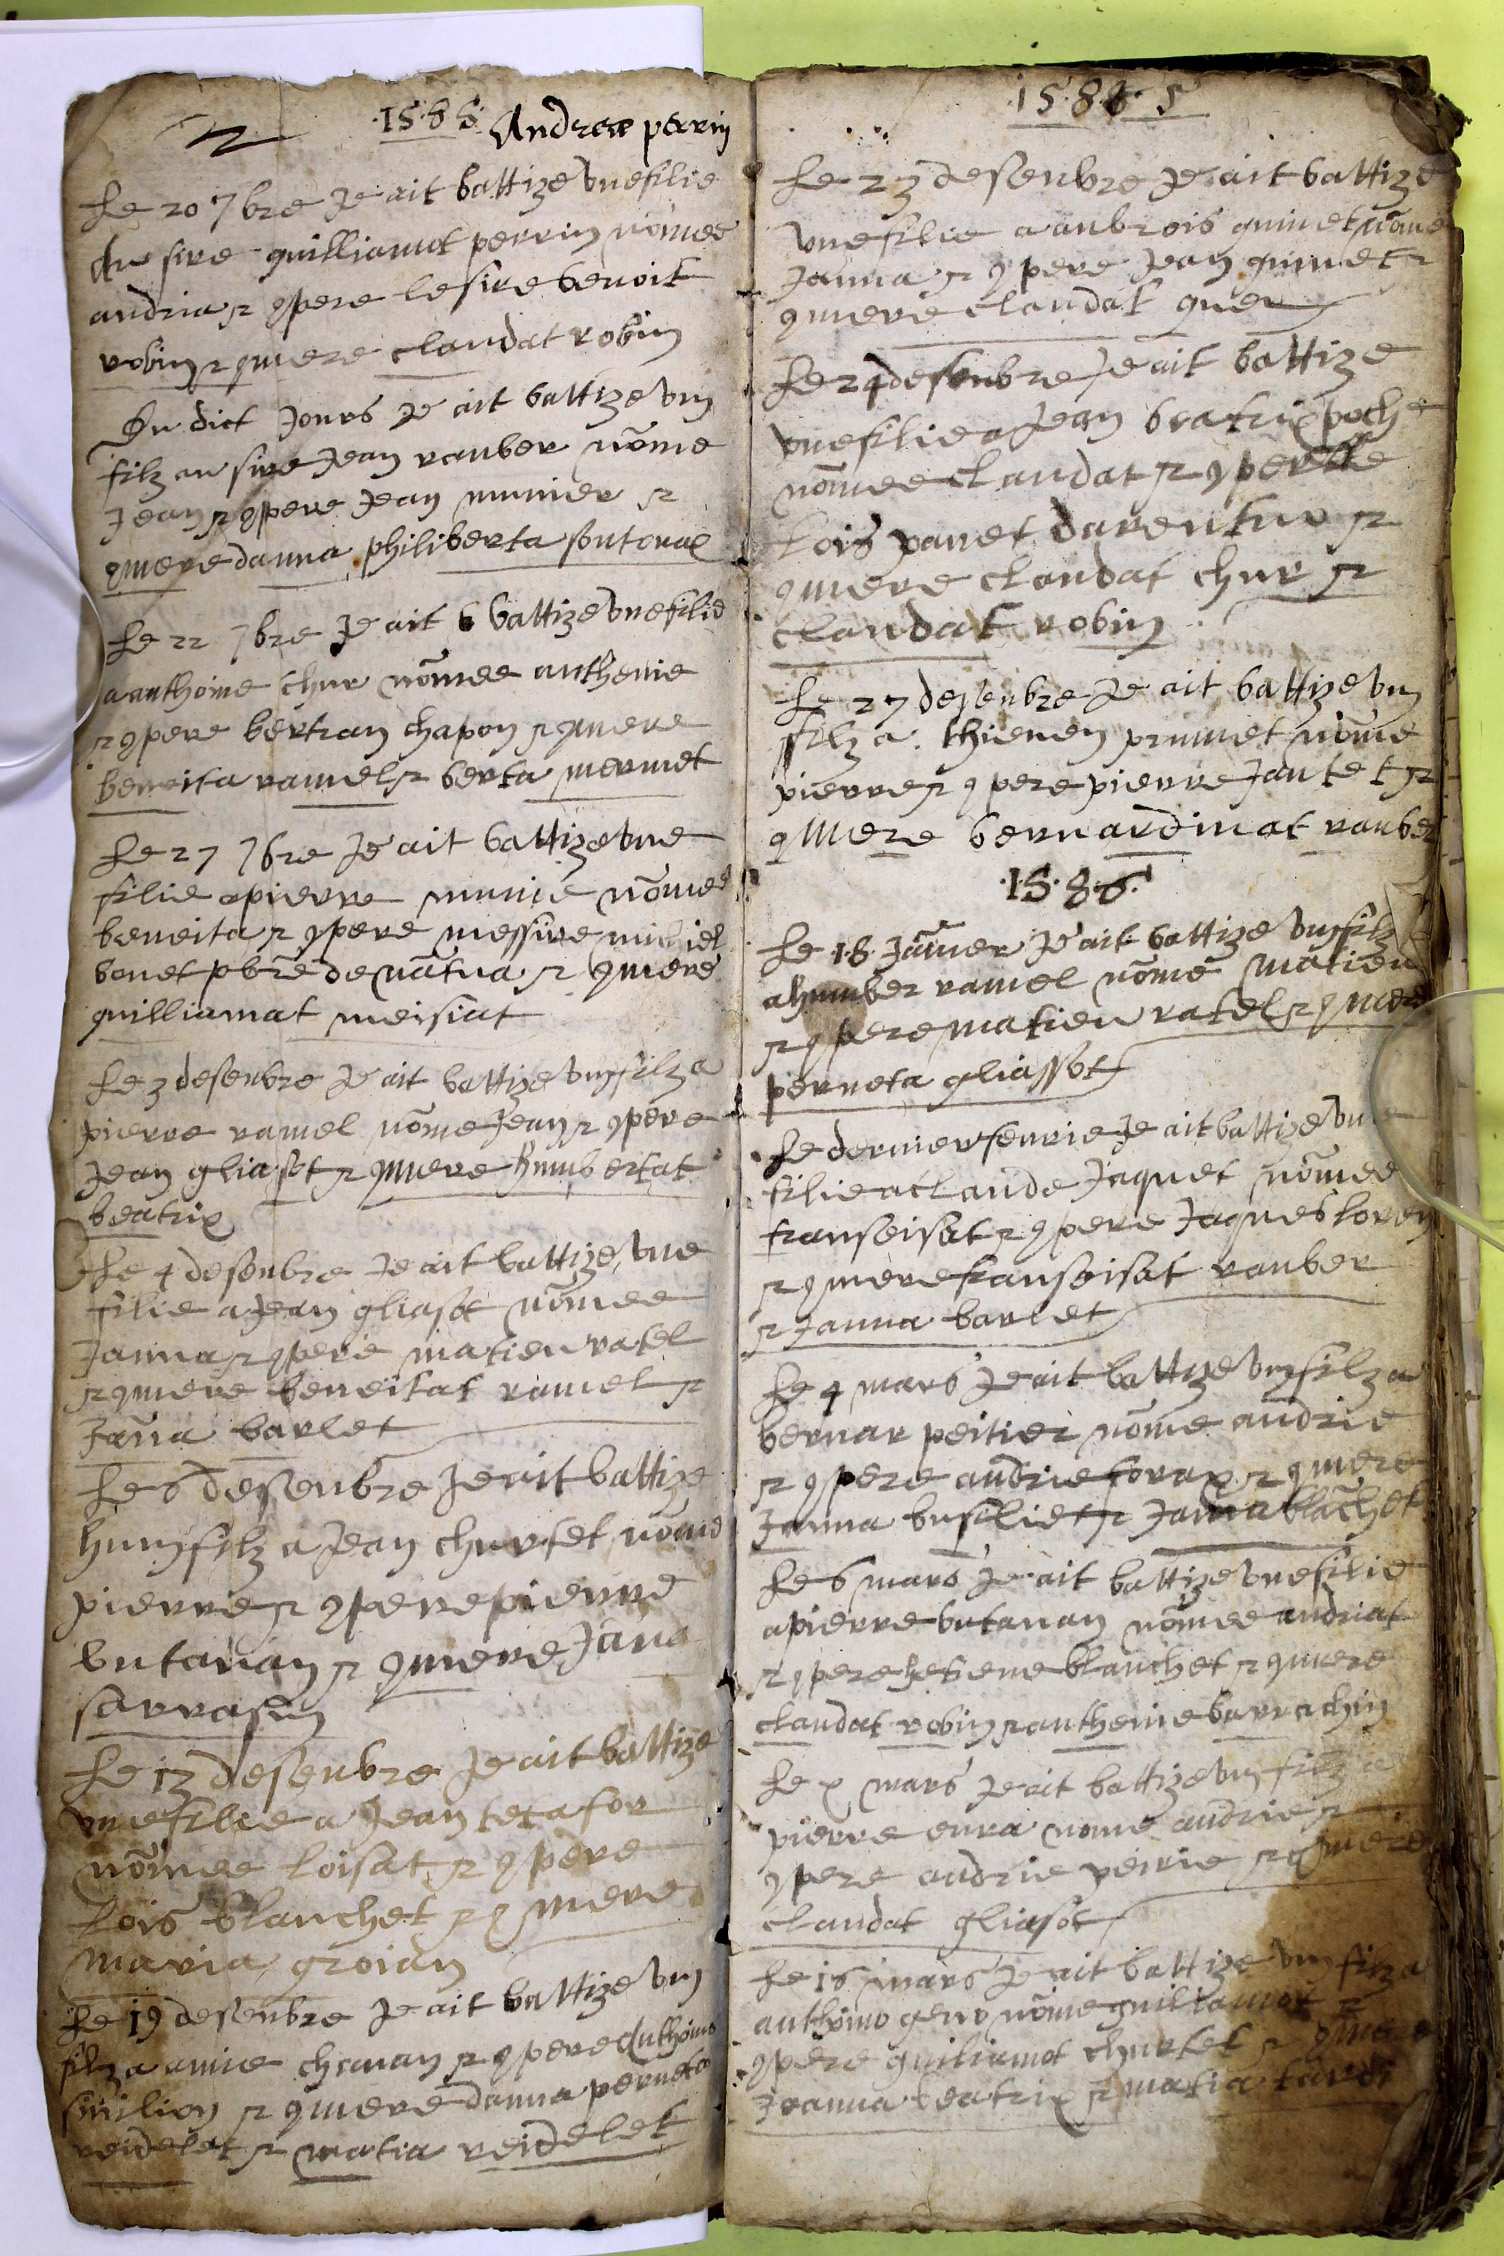 1585 Andrea perrin
Le 20 7bre Je ait battize vne filie
du sire guilliamot perrin nõmee
andria et 9pere le sire benoit
robin et 9mere claudat robin
Du dict Jours Je ait battize vng
filz au sire Jean rauber nõme
Jean et 9pere Jean munier et
9mere danna philiberta sontonax
Le 22 7bre Je ait b battize vne filie
a anthoine chur nõmee anthenie
et 9pere bertran chapon et 9mere
beneita ramel et berta mermet
Le 27 7bre Je ait battize vne
filie a pierre munie nõmee
beneita et 9pere messire michiel
bonet pbre de nãtua et 9mere
guilliamat meisiat
Le 3 desenbre Je ait battize vng filz a
pierre ramel nõme Jean et 9pere
Jean gliasot et 9mere humbertat
beatrix
Le 4 desenbre Je ait battize vne
filie a Jean gliasot nõmee
Janna et 9pere matieu ratel
et 9mere beneitat ramel et
Jãna barlet
Le 6 desenbre Je ait battize
hung filz a Jean churlet nõme
pierre et 9pere pierre
butauan et 9mere Jana
sarrasin
Le 13 desenbre Je ait battize
vne filie a Jean tetafor
nõmee loisat et 9pere
Lois blanchet et 9mere
maria groian
Le 19 desenbre Je ait battize vng
filz a amie chauan et 9pere Anthoino
sinilion et 9mere danna perneta
reidelet et matia reidelet
1585
Le 23 desenbre Je ait battize
vne filie a anbrois guinet nõmee
Janna et 9pere Jean guinet et
9mere claudat guer
Le 24 desenbre Je ait battize
vne filie a Jean beatrix poche
nõmee claudat et 9pere
Lois panet darentur et
9mere claudat chur et
claudat robin
Le 27 desenbre Je ait battize vng
filz a thieuen prunet nõme
pierre et 9pere pierre Jantet et
9mere bernardinat rauber
1586
Le 18 Jãuier Je ait battize vng filz
a humber ramel nõme matieu
et 9pere matieu ratel et 9mere
perneta gliassot
Le dernier feurie Je ait battize vne
filie a claude Jaquet nõmee
franseisat et 9pere Jaques loren
et 9mere franseisat rauber
et Janna barlet
Le 4 mars Je ait battize vng filz a
bernar peitier nõme andrie
et 9pere andrie forax et 9mere
Janna bufiliet et Janna blãchet
Le 6 mars Je ait battize vne filie
a pierre butauan nõmee andriat
et 9pere blanchet et 9mere
claudat robin et anthenie barrachin
Le x mars Je ait battize vng filz a
pierre eura nome andrie et
9pere andrie peirie et 9mere
claudat gliasot
Le 16 mars Je ait battize vng filz a
anthoino geno nõme guiliamot et
9pere guiliamot churlet et 9mere
Joanna beatrix et matia tardi